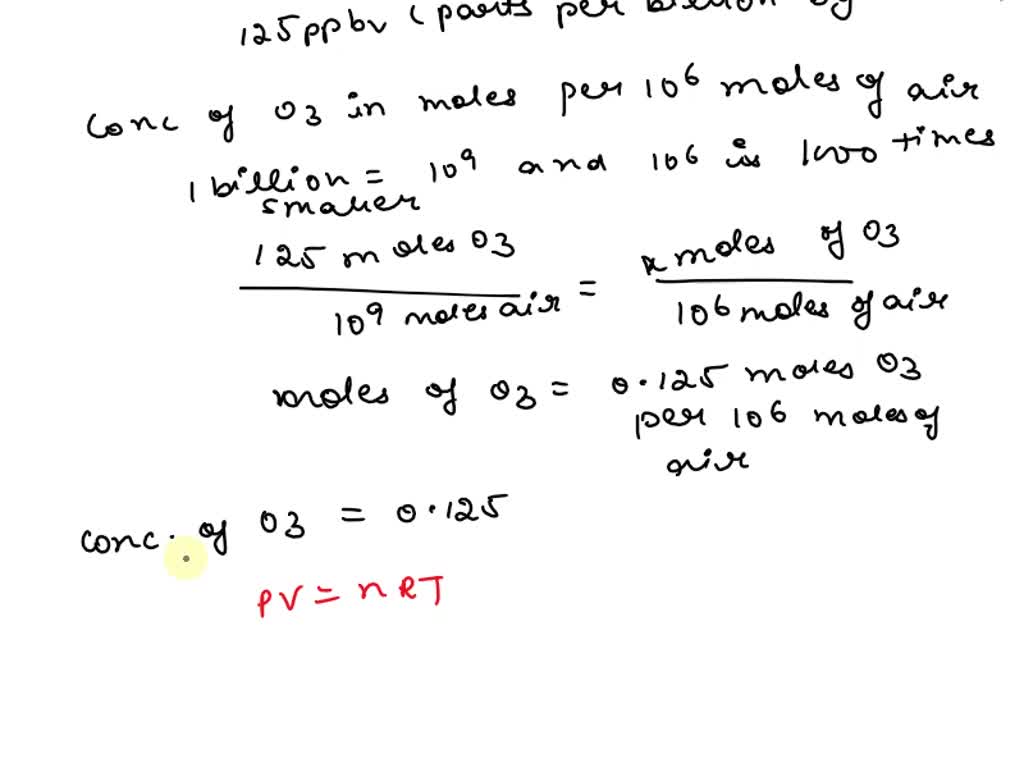 125 ppbv (parts per billion by
conc of O3 in moles per 10^6 moles of air
1 billion = 10^9 and 10^6 is 1000 times
smaller
125 moles O3 / 10^9 moles air = x moles of O3 / 10^6 moles of air
moles of O3 = 0.125 moles O3
per 10^6 moles of
air
conc. of O3 = 0.125
PV = nRT